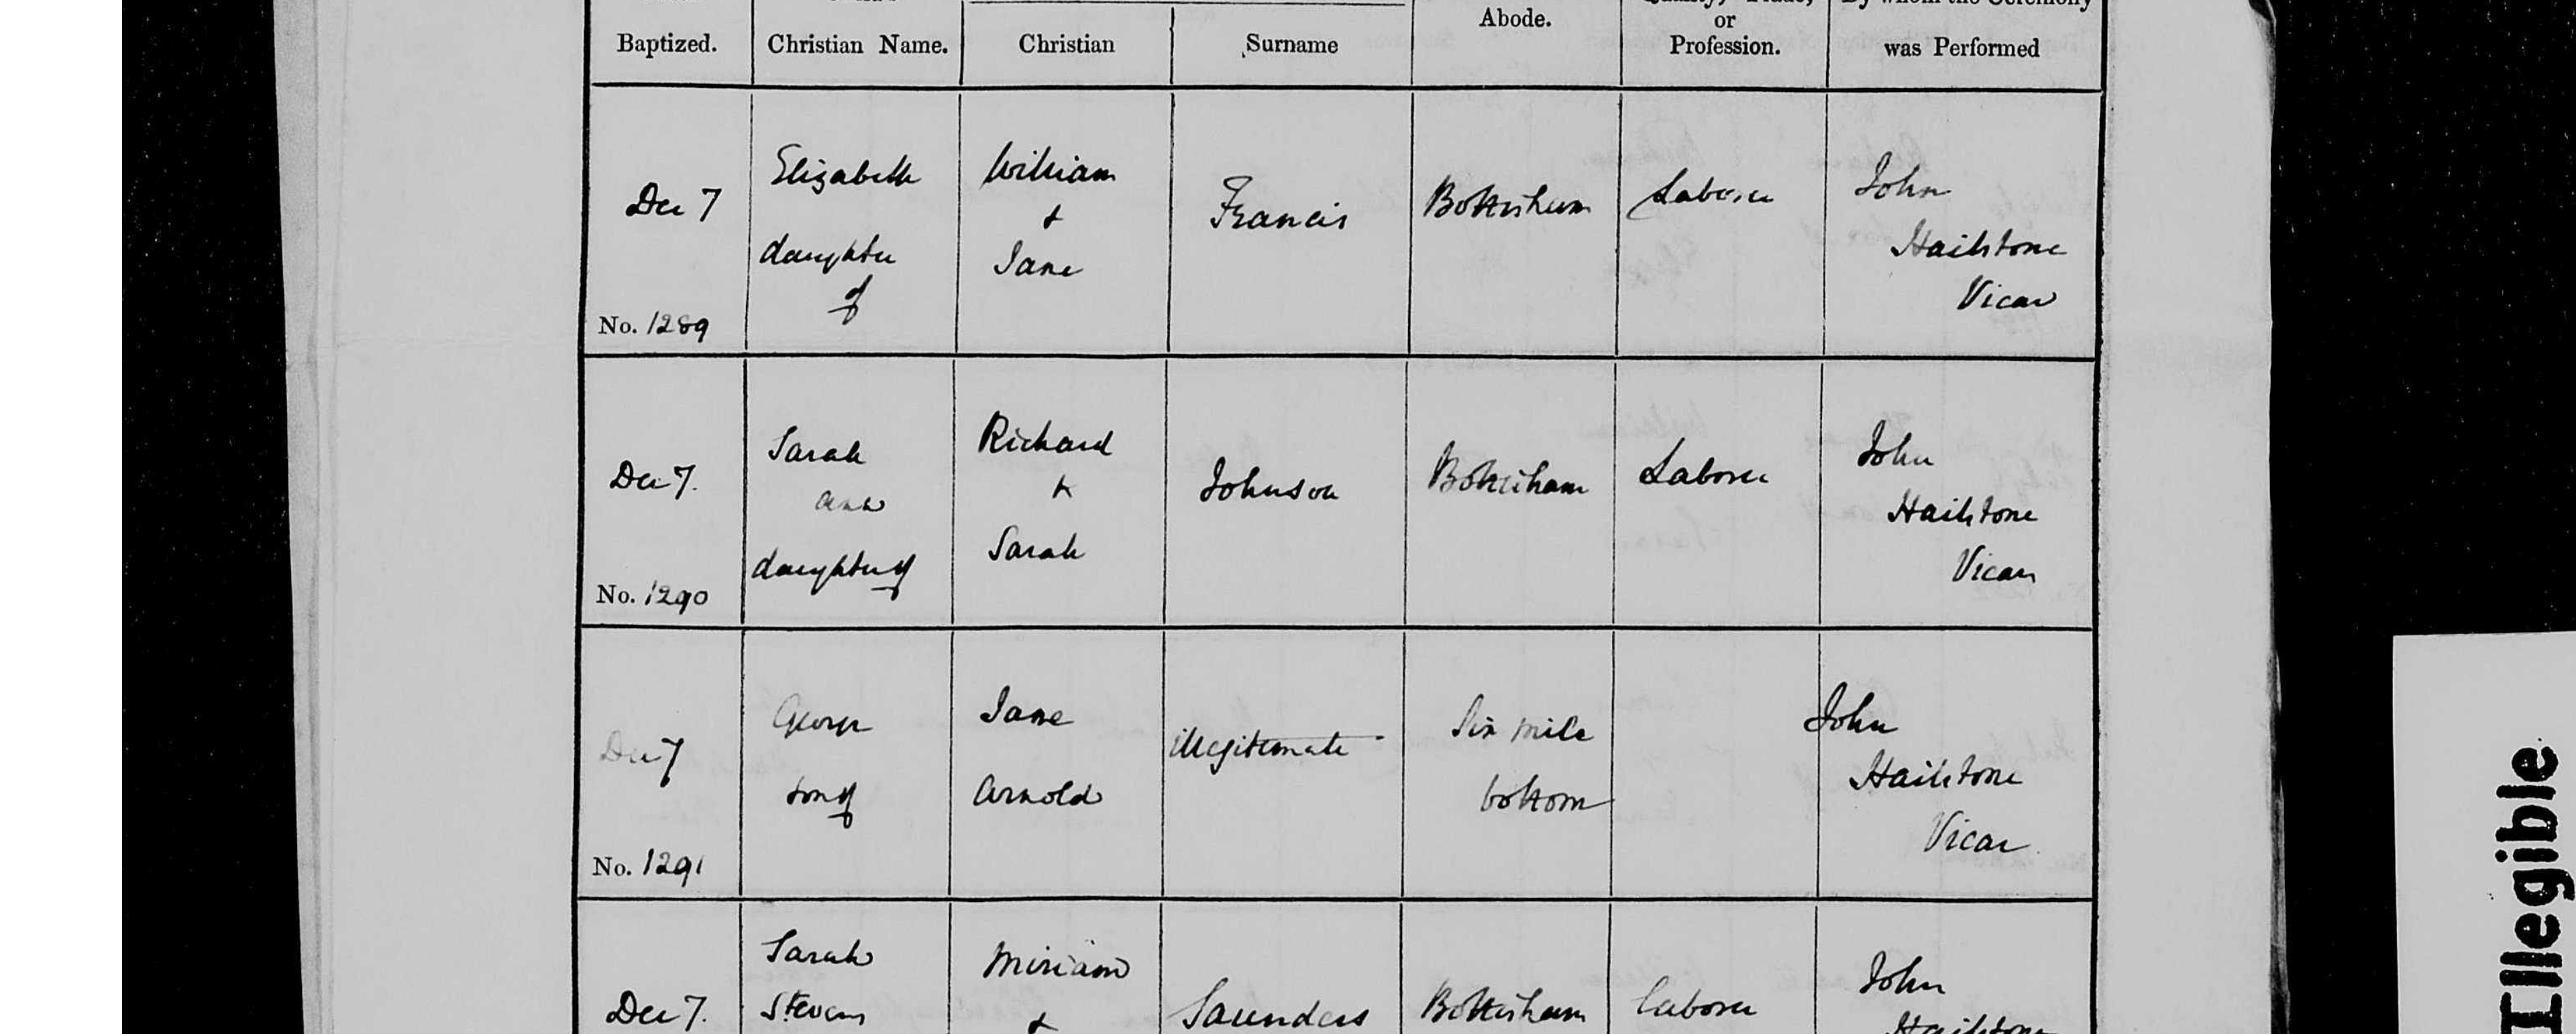 Abode.
or
By whom the Ceremony
Baptized.
Christian Name.
Christian
Surname
Profession.
was Performed
Dec 7
No. 1289
Elizabeth
daughter
of
William
&
Jane
Francis
Bottisham
Laborer
John
Hailstone
Vicar
Dec 7.
No. 1290
Sarah
Ann
daughter of
Richard
&
Sarah
Johnson
Bottisham
Laborer
John
Hailstone
Vicar
Dec 7
No. 1291
George
son of
Jane
Arnold
illegitimate
Six mile
bottom
John
Hailstone
Vicar
Dec 7.
Sarah
Stevens
Miriam
&
Saunders
Bottisham
laborer
John
Hailstone
Illegible